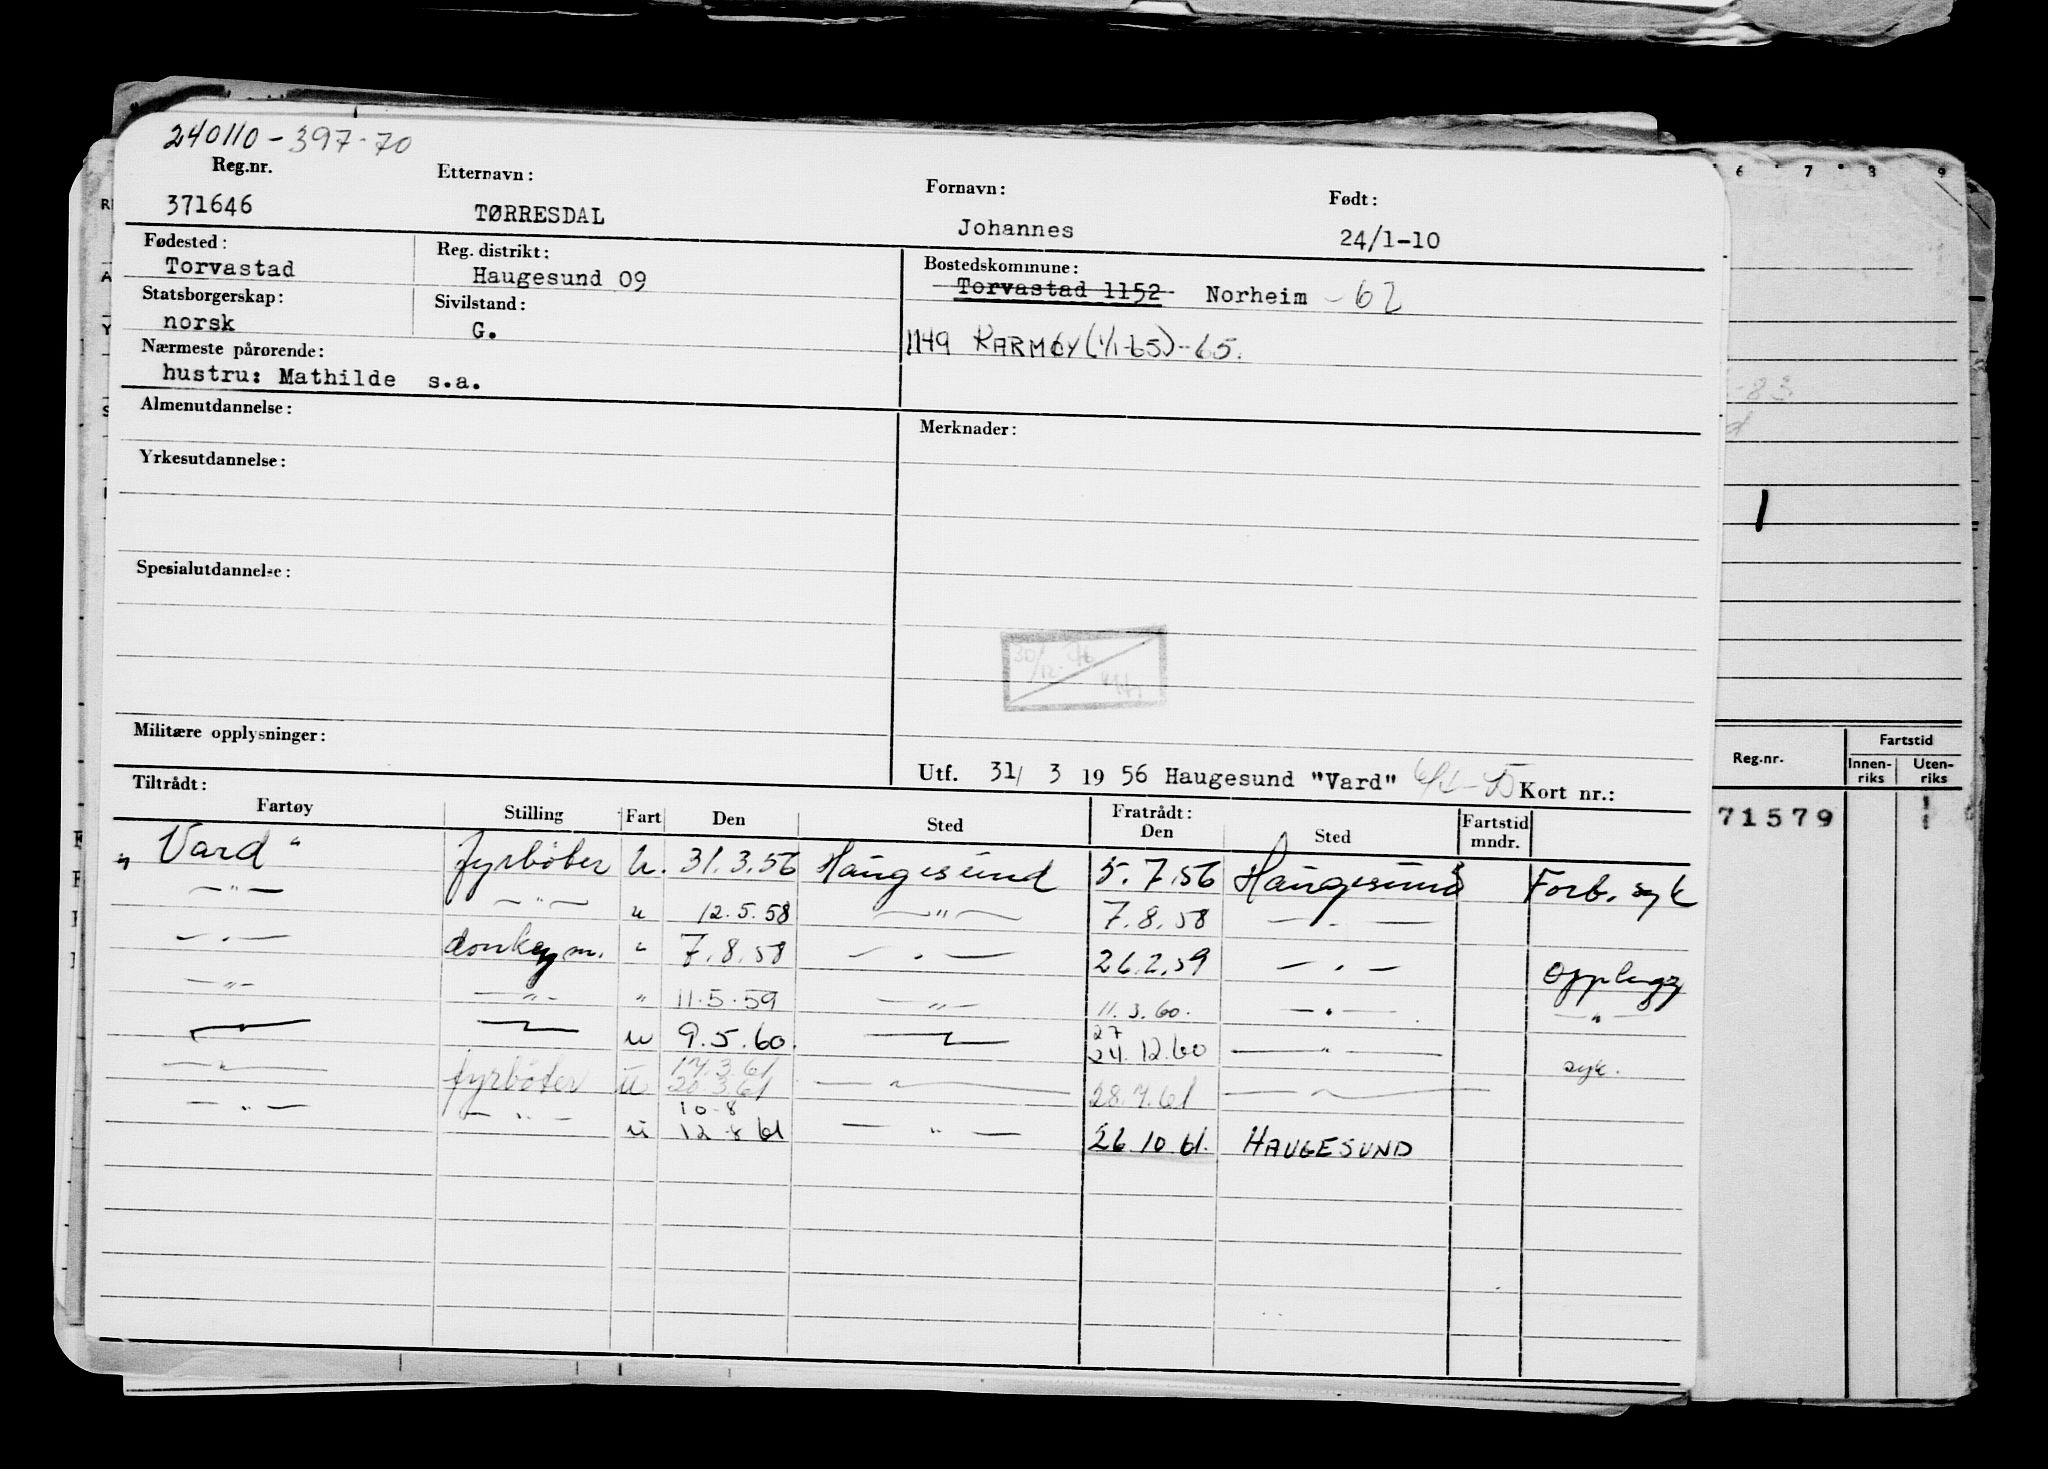 240110-397-70
Reg.nr. Etternavn: Fornavn: Født:
371646 TØRRESDAL Johannes 24/1-10
Fødested: Reg. distrikt: Bostedskommune:
Torvastad Haugesund 09 Torvastad 1152 Norheim -62
Statsborgerskap: Sivilstand:
norsk G. 1149 KARMØY (1/1-65)-65.
Nærmeste pårørende:
hustru: Mathilde s.a.
Almenutdannelse: Merknader:
Yrkesutdannelse:
Spesialutdannelse:
30/12
Militære opplysninger:
Utf. 31/ 3 19 56 Haugesund "Vard" Kort nr.:
Tiltrådt: Fratrådt:
Fartøy Stilling Fart Den Sted Den Sted Fartstid mndr.
"Vard" fyrbøter U. 31.3.56 Haugesund 5.7.56 Haugesund Forb. syk
—"— —"— u 12.5.58 —"— 7.8.58 —"—
—"— donkeym. " 7.8.58 —"— 26.2.59 —"— Opplegg
—"— —"— " 11.5.59 —"— 11.3.60. —"— —"—
27
—"— —"— u 9.5.60. —"— 24.12.60 —"— syk.
17.3.61
—"— fyrbøter u 20.3.61 —"— 28.7.61 —"—
10-8
—"— —"— u 12-8 61 —"— 26.10.61. HAUGESUND
6 7 8 9
-83.
Reg.nr. Fartstid
Innen-riks Uten-riks
71579